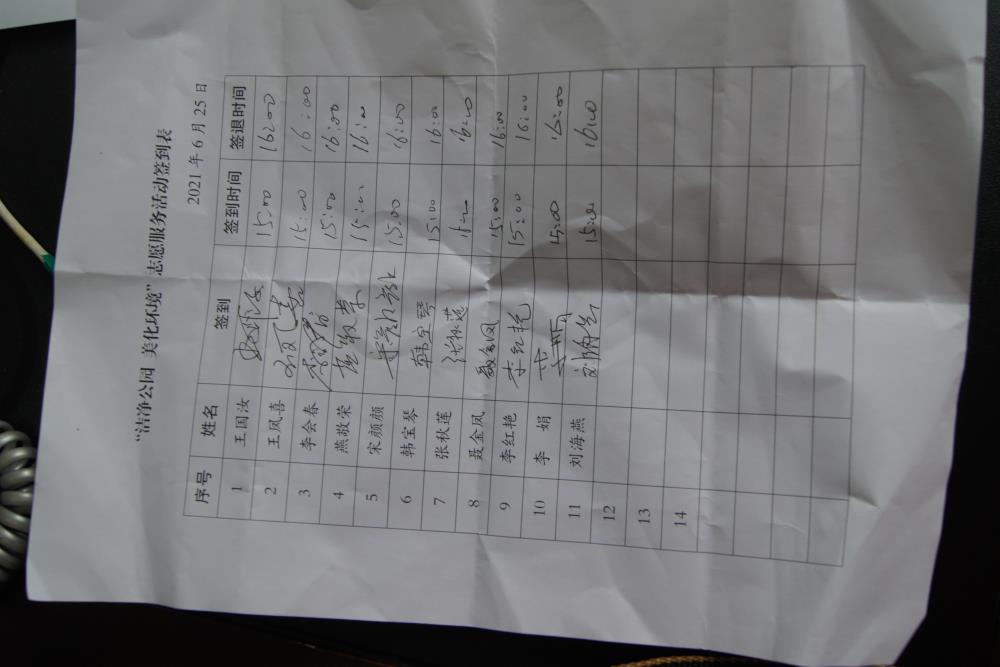 “洁净公园 美化环境”志愿服务活动签到表
2021 年 6 月 25 日
序号 姓名 签到 签到时间 签退时间
1 王国汝 15:00 16:00
2 王凤喜 15:00 16:00
3 李会春 15:00 16:00
4 燕敬荣 燕敬荣 15:00 16:00
5 宋颜颜 宋颜颜 15:00 16:00
6 韩宝琴 韩宝琴 15:00 16:00
7 张秋莲 张秋莲 16:00
8 聂金凤 聂金凤 15:00 16:00
9 李红艳 李红艳 15:00 16:00
10 李 娟 15:00 16:00
11 刘海燕 15:00 16:00
12
13
14